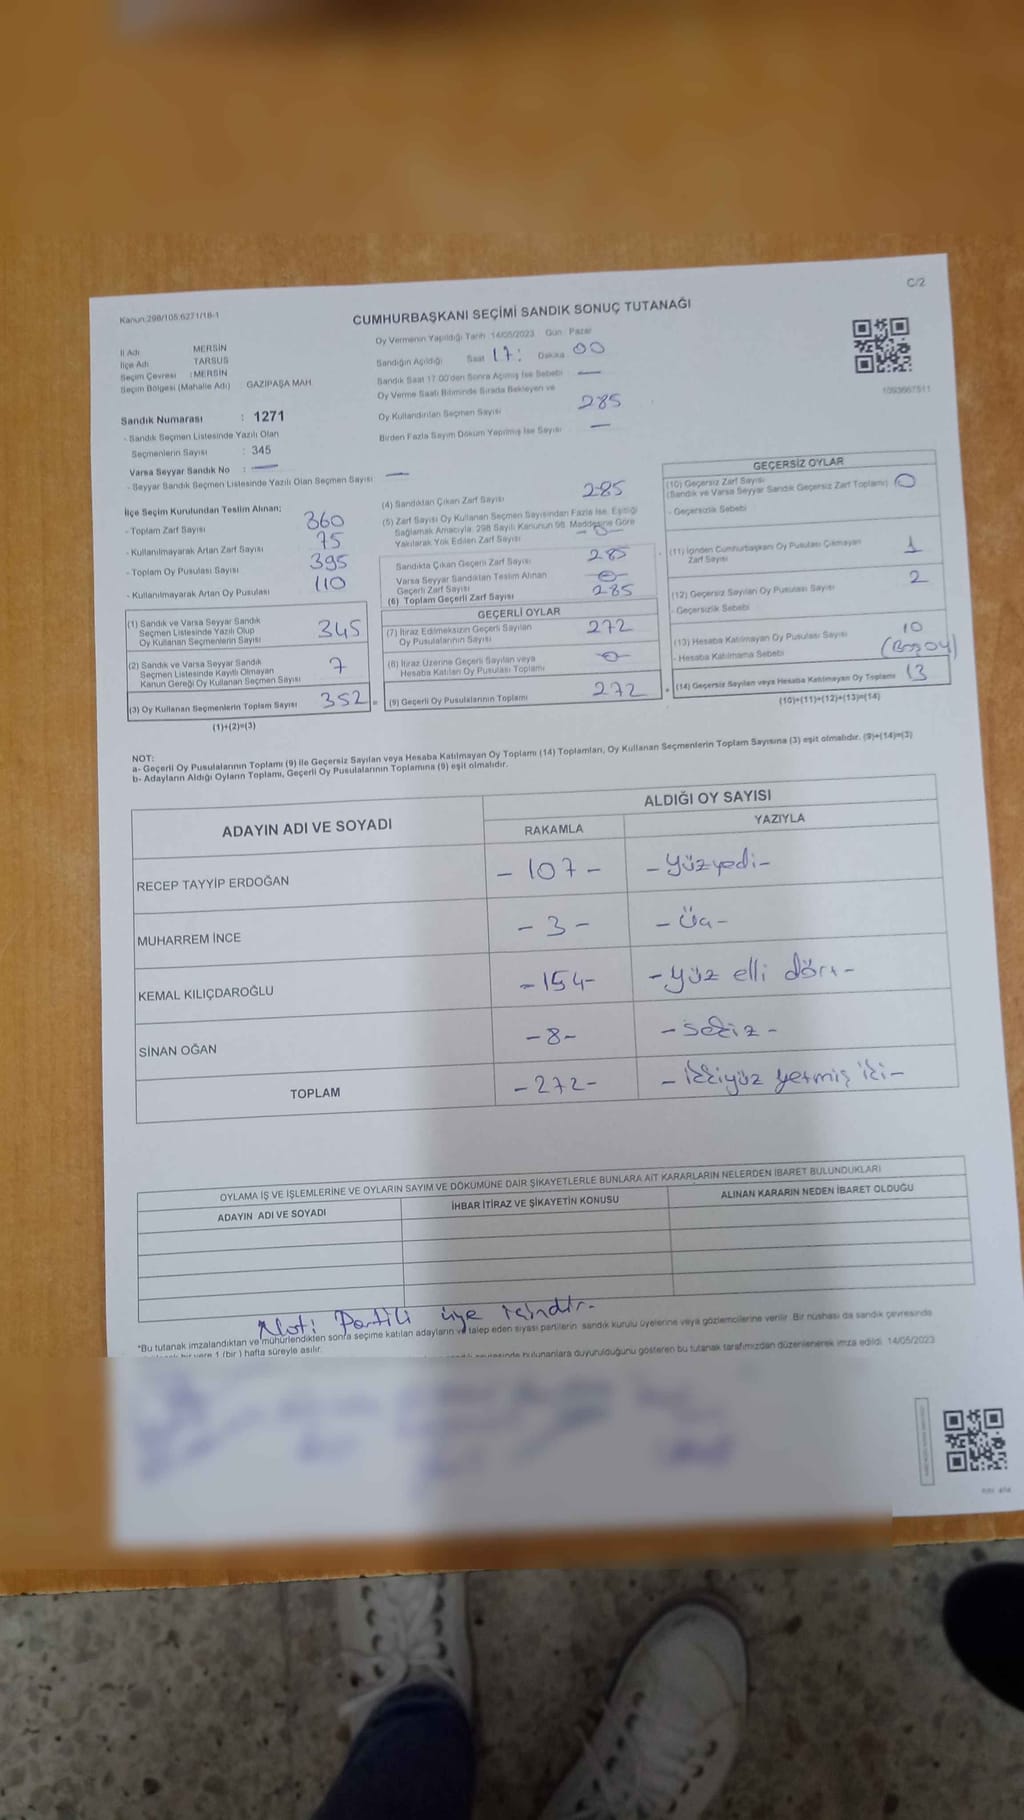 C/2
Kanun:298/105:6271/18-1
CUMHURBAŞKANI SEÇİMİ SANDIK SONUÇ TUTANAĞI
Oy Vermenin Yapıldığı Tarih :14/05/2023 Gün : Pazar
İl Adı MERSİN
İlçe Adı TARSUS
Seçim Çevresi : MERSİN
Seçim Bölgesi (Mahalle Adı) : GAZİPAŞA MAH.
Sandığın Açıldığı Saat 17: Dakika 00
Sandık Saat 17:00'den Sonra Açılmış İse Sebebi —
Oy Verme Saati Bitiminde Sırada Bekleyen ve
Oy Kullandırılan Seçmen Sayısı 285
Birden Fazla Sayım Döküm Yapılmış İse Sayısı —
1093667511
Sandık Numarası : 1271
- Sandık Seçmen Listesinde Yazılı Olan
Seçmenlerin Sayısı : 345
Varsa Seyyar Sandık No : —
- Seyyar Sandık Seçmen Listesinde Yazılı Olan Seçmen Sayısı —
İlçe Seçim Kurulundan Teslim Alınan;
- Toplam Zarf Sayısı 360
- Kullanılmayarak Artan Zarf Sayısı 75
- Toplam Oy Pusulası Sayısı 395
- Kullanılmayarak Artan Oy Pusulası 110
(1) Sandık ve Varsa Seyyar Sandık
Seçmen Listesinde Yazılı Olup
Oy Kullanan Seçmenlerin Sayısı 345
(2) Sandık ve Varsa Seyyar Sandık
Seçmen Listesinde Kayıtlı Olmayan
Kanun Gereği Oy Kullanan Seçmen Sayısı 7
(3) Oy Kullanan Seçmenlerin Toplam Sayısı 352 =
(1)+(2)=(3)
(4) Sandıktan Çıkan Zarf Sayısı 285
(5) Zarf Sayısı Oy Kullanan Seçmen Sayısından Fazla İse, Eşitliği
Sağlamak Amacıyla; 298 Sayılı Kanunun 98. Maddesine Göre
Yakılarak Yok Edilen Zarf Sayısı -0-
Sandıkta Çıkan Geçerli Zarf Sayısı 285
Varsa Seyyar Sandıktan Teslim Alınan
Geçerli Zarf Sayısı -0-
(6) Toplam Geçerli Zarf Sayısı 285
GEÇERLİ OYLAR
(7) İtiraz Edilmeksizin Geçerli Sayılan
Oy Pusulalarının Sayısı 272
(8) İtiraz Üzerine Geçerli Sayılan veya
Hesaba Katılan Oy Pusulası Toplamı -0-
(9) Geçerli Oy Pusulalarının Toplamı 272 +
GEÇERSİZ OYLAR
(10) Geçersiz Zarf Sayısı
(Sandık ve Varsa Seyyar Sandık Geçersiz Zarf Toplamı) 0
- Geçersizlik Sebebi
(11) İçinden Cumhurbaşkanı Oy Pusulası Çıkmayan
Zarf Sayısı 1
(12) Geçersiz Sayılan Oy Pusulası Sayısı 2
- Geçersizlik Sebebi
(13) Hesaba Katılmayan Oy Pusulası Sayısı 10
- Hesaba Katılmama Sebebi
(14) Geçersiz Sayılan veya Hesaba Katılmayan Oy Toplamı 13
(10)+(11)+(12)+(13)=(14)
NOT:
a- Geçerli Oy Pusulalarının Toplamı (9) ile Geçersiz Sayılan veya Hesaba Katılmayan Oy Toplamı (14) Toplamları, Oy Kullanan Seçmenlerin Toplam Sayısına (3) eşit olmalıdır. (9)+(14)=(3)
b- Adayların Aldığı Oyların Toplamı, Geçerli Oy Pusulalarının Toplamına (9) eşit olmalıdır.
ADAYIN ADI VE SOYADI
ALDIĞI OY SAYISI
RAKAMLA YAZIYLA
RECEP TAYYİP ERDOĞAN - 107 - - Yüzyedi -
MUHARREM İNCE - 3 - - Üç -
KEMAL KILIÇDAROĞLU - 154 - - Yüz elli dört -
SİNAN OĞAN - 8 - - sekiz -
TOPLAM - 272 - - ikiyüz yetmiş iki -
OYLAMA İŞ VE İŞLEMLERİNE VE OYLARIN SAYIM VE DÖKÜMÜNE DAİR ŞİKAYETLERLE BUNLARA AİT KARARLARIN NELERDEN İBARET BULUNDUKLARI
ADAYIN ADI VE SOYADI İHBAR İTİRAZ VE ŞİKAYETİN KONUSU ALINAN KARARIN NEDEN İBARET OLDUĞU
Not: Partili üye içindir.
*Bu tutanak imzalandıktan ve mühürlendikten sonra seçime katılan adayların ve talep eden siyasi partilerin sandık kurulu üyelerine veya gözlemcilerine verilir. Bir nüshası da sandık çevresinde
bir yere 1 (bir ) hafta süreyle asılır.
bulunanlara duyurulduğunu gösteren bu tutanak tarafımızdan düzenlenerek imza edildi. 14/05/2023